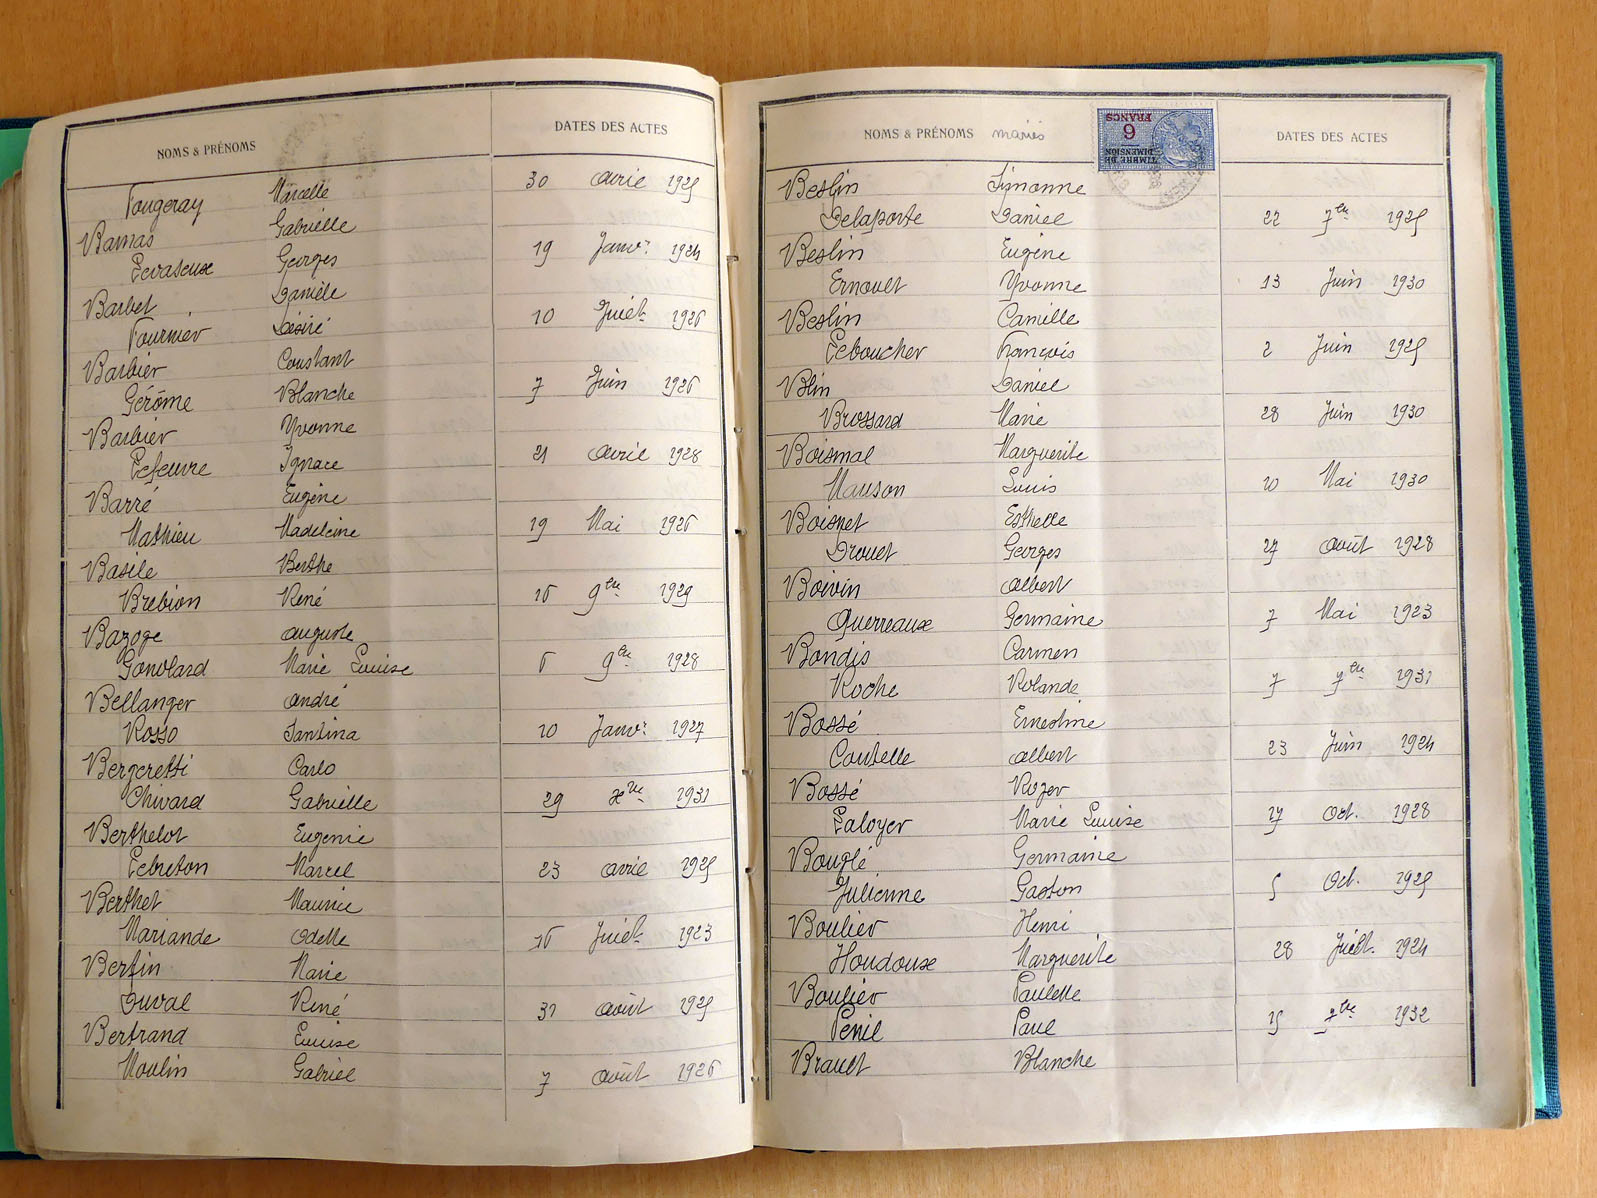 NOMS & PRÉNOMS DATES DES ACTES
Fougeray Marcelle 30 avril 1925
Bamas Gabrielle
Levasseux Georges 19 Janvr 1924
Barbet Danièle
Fournier Désiré 10 Juiet 1926
Barbier Constant
Gérôme Blanche 7 Juin 1926
Barbier Yvonne
Lefeuvre Ignace 21 avril 1928
Barré Eugène
Mathieu Madeleine 19 Mai 1926
Basile Berthe
Brebion René 16 9bre 1929
Bazoge auguste
Gondard Marie Louise 6 9bre 1928
Bellanger andré
Rosso Santina 10 Janvr 1927
Bergeretti Carlo
Chivard Gabrielle 29 xbre 1931
Berthelot Eugenie
Lebreton Marcel 23 avril 1925
Berthet Maurice
Mariande Odette 16 Juiet 1923
Bertin Marie
Duval René 31 août 1925
Bertrand Louise
Moulin Gabriel 7 août 1926
NOMS & PRÉNOMS mariés DATES DES ACTES
TIMBRE DE DIMENSION
6 FRANCS
Beslin Simonne
Delaporte Daniel 22 7bre 1925
Beslin Eugène
Ernouet Yvonne 13 Juin 1930
Beslin Camille
Leboucher François 2 Juin 1925
Blin Daniel
Brossard Marie 28 Juin 1930
Boismal Marguerite
Mauson Louis 10 Mai 1930
Boisnet Esthelle
Drouet Georges 27 août 1928
Boivin albert
Querreaux Germaine 7 Mai 1923
Bondis Carmen
Roche Rolande 7 7bre 1931
Bossé Ernestine
Coutelle albert 23 Juin 1924
Bossé Roger
Laloyer Marie Louise 27 Oct. 1928
Bouglé Germaine
Julienne Gaston 5 Oct. 1925
Boulier Henri
Houdoux Marguerite 28 Juiet. 1924
Boulier Paulette
Penil Paul 15 7bre 1932
Brault Blanche